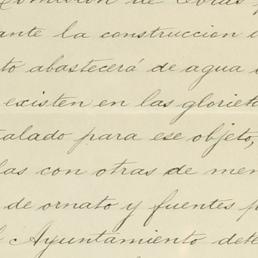 Comisión de Obras
ante la construccion
to abastecerá de agua
existen en las gloriet
talado para ese objeto,
las con otras de men
de ornato y fuentes p
l Ayuntamiento dete